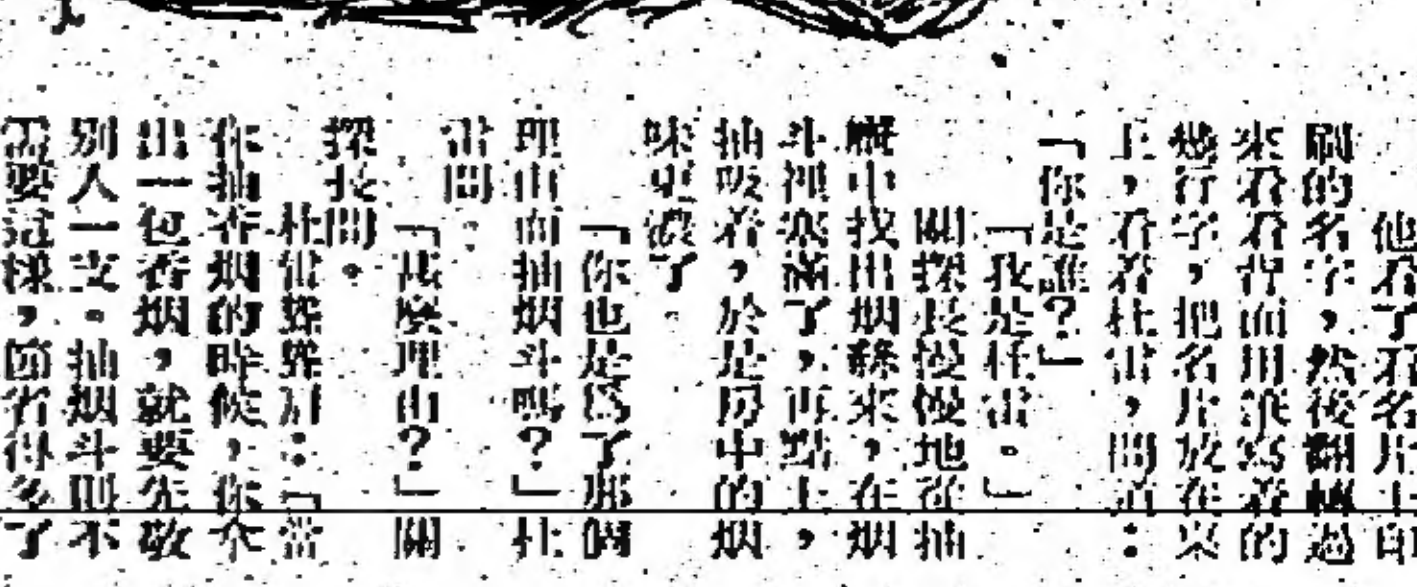 他看了看名片上印
刷的名字，然後翻轉過
來看看背面用筆寫着的
幾行字，把名片放在桌
上，看看杜雷，問道：
「你是誰？」
「我是杜雷。」
關探長慢慢地從抽
屜中找出烟絲來，在烟
斗裡塞滿了，再點上，
抽吸着，於是房中的烟
味更濃了。
「你也是爲了那個
理由而抽烟斗嗎？」杜
雷問：
「甚麼理由？」關
探長問。
杜雷聳聳肩：「當
你抽香烟的時候，你拿
出一包香烟，就要先敬
別人一支。抽烟斗則不
需要這樣，節省得多了